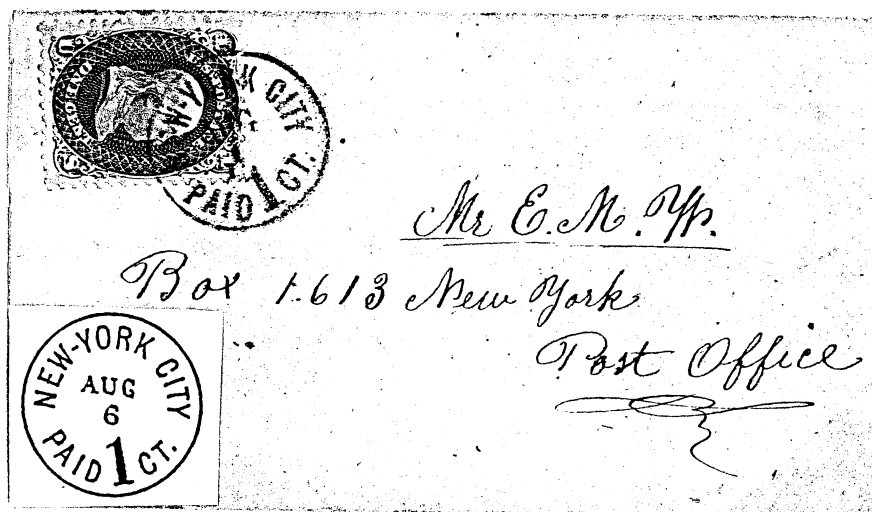 N.Y. K CITY
PAID 1 CT.
Mr E. M. W.
Box 1.613 New York
Post Office
NEW-YORK CITY
AUG
6
PAID 1 CT.